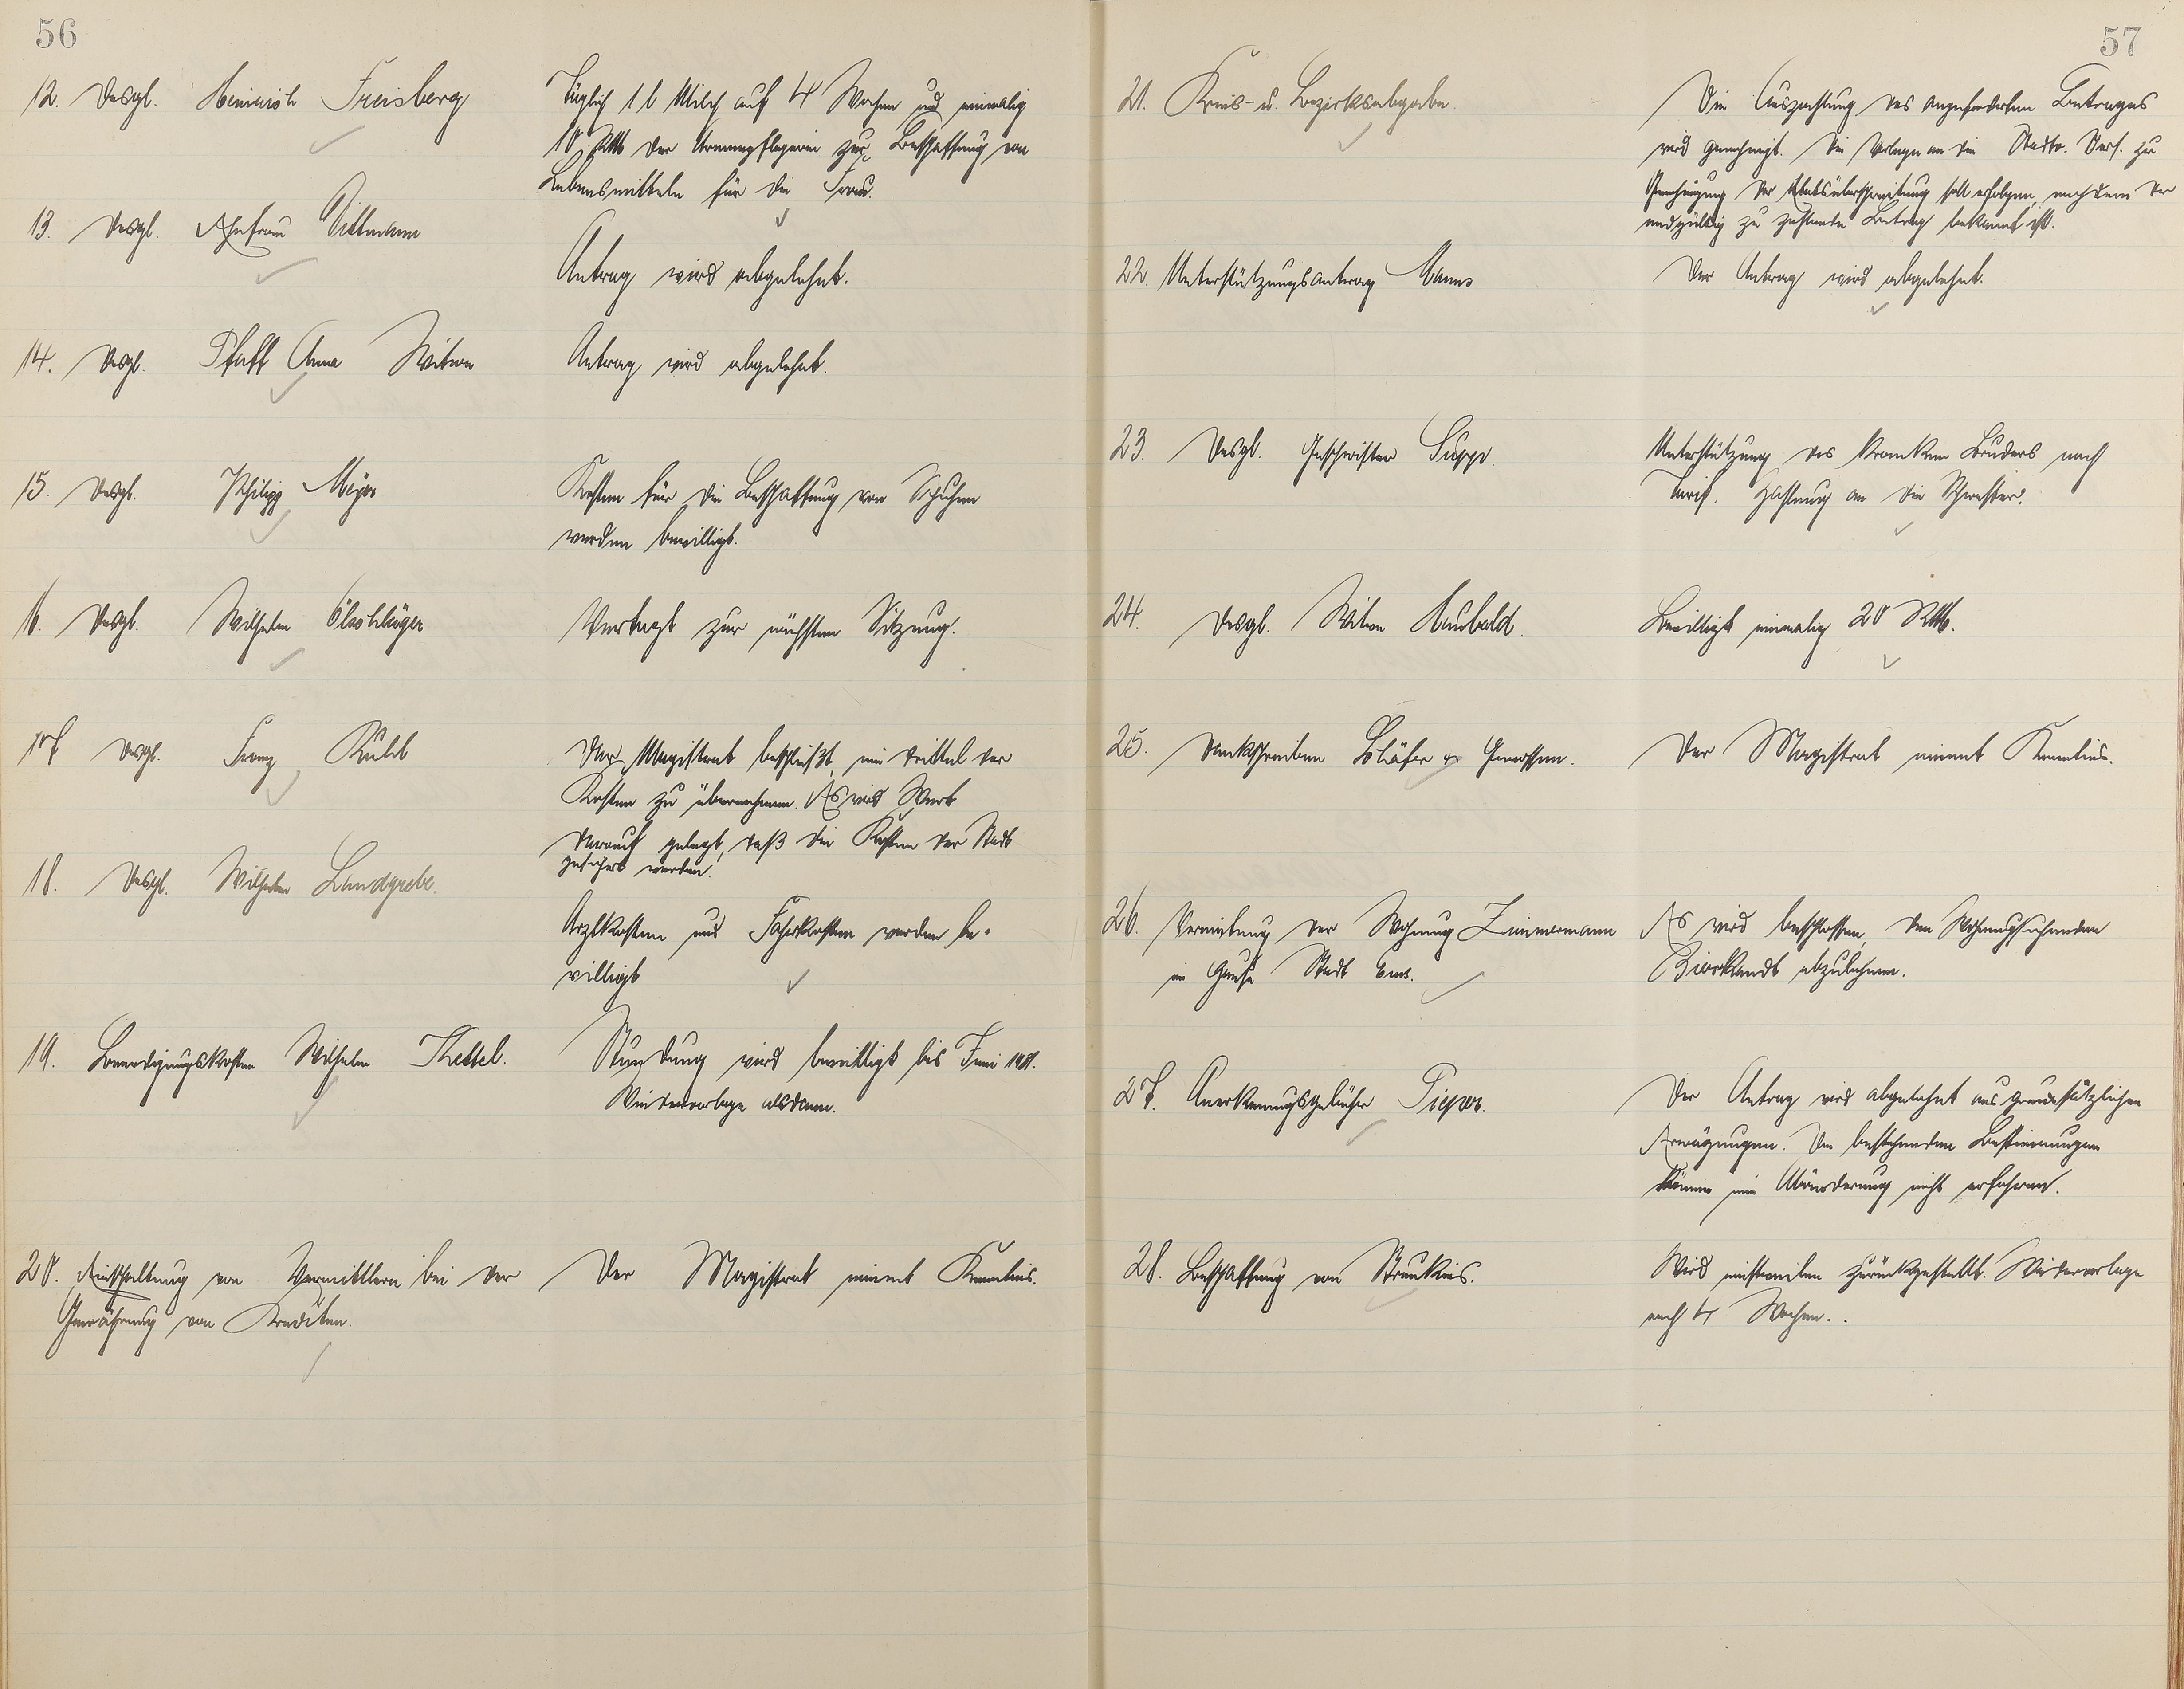 56
12. Desgl. Heinrich Freisberg
Täglich 1 l Milch auf 4 Wochen und einmalig
10 RM der Armenpflegerin zur Beschaffung von
Lebensmitteln für die Frau.
13. Desgl. Ehefrau Dittmann
Antrag wird abgelehnt.
14. Desgl. Pfaff Anna Witwe
Antrag wird abgelehnt.
15. Desgl. Philipp Meyer
Kosten für die Beschaffung von Schuhen
werden bewilligt.
16. Desgl. Wilhelm Ölschläger
Vertagt zur nächsten Sitzung.
17 Desgl. Franz
Der Magistrat beschließt, ein Drittel der
Kosten zu übernehmen. Es wird Wert
darauf gelegt, daß die Kosten der Stadt
gesichert werden.
18. Desgl. Wilhelm Landgrebe.
Arztkosten und Fahrkosten werden be-
willigt
19. Beerdigungskosten Wilhelm Thestel.
Stundung wird bewilligt bis Juni 1931.
Wiedervorlage alsdann.
20. Einschaltung von Vermittlern bei der
Gewährung von Krediten.
Der Magistrat nimmt Kenntnis.
57
21. Kreis- u. Bezirksabgabe.
Die Auszahlung des angeforderten Betrages
wird genehmigt. Die Vorlage an die Stadtv. Vers. zu
Genehmigung der Etatsüberschreitung soll erfolgen, nachdem der
endgültig zu zahlende Betrag bekannt ist.
22. Unterstützungsantrag Manns
Der Antrag wird abgelehnt.
23. Desgl. Geschwister Supp.
Unterstützung des kranken Bruders nach
Tarif. Zahlung an die Schwester.
24. Desgl. Witwe Neubald.
Bewilligt einmalig 20 RM.
25. Dankschreiben Schäfer u. Genossen.
Der Magistrat nimmt Kenntnis.
26. Vermietung der Wohnung Zimmermann
im Hause Stadt Ems.
Es wird beschlossen, den Wohnungsuchenden
abzulehnen.
27. Anerkennungsgebühr Pieper.
Der Antrag wird abgelehnt aus grundsätzlichen
Erwägungen. Die bestehenden Bestimmungen
können eine Abänderung nicht erfahren.
28. Beschaffung von Streukies.
Wird einstweilen zurückgestellt. Wiedervorlage
nach 4 Wochen.